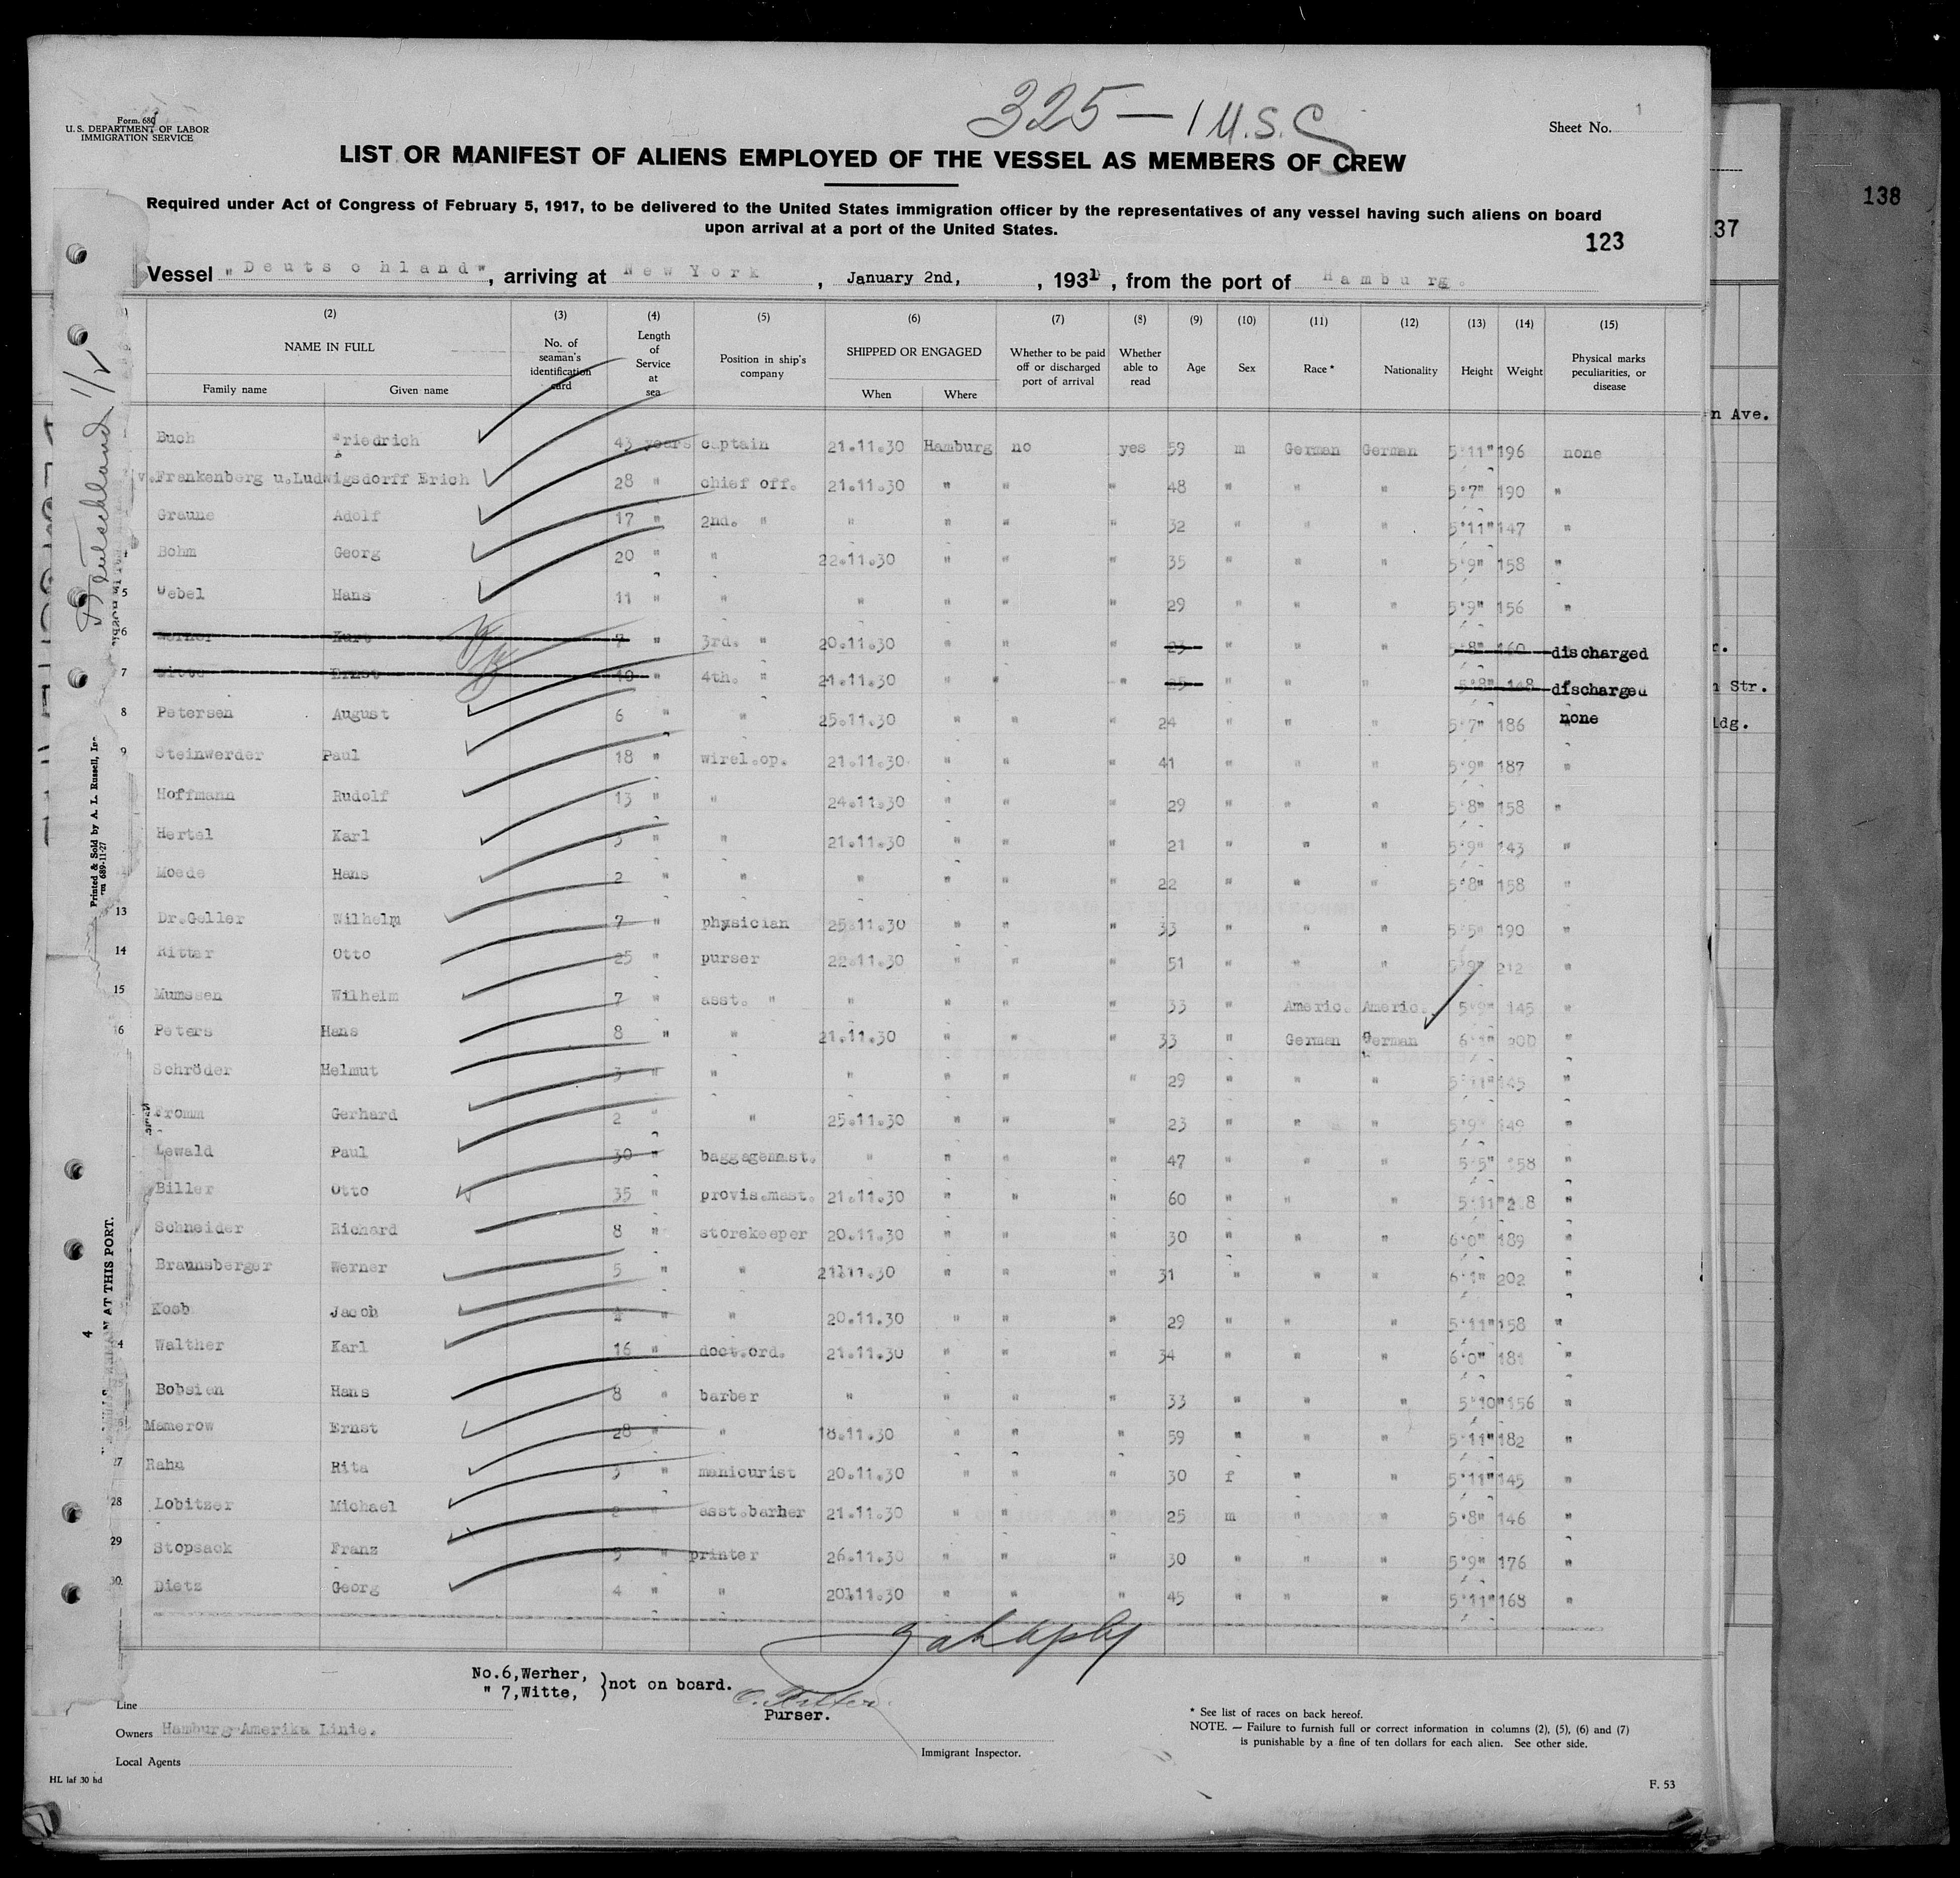 325 — 1 U.S.C
Form 689
U.S. DEPARTMENT OF LABOR
IMMIGRATION SERVICE
Sheet No. 1
LIST OR MANIFEST OF ALIENS EMPLOYED OF THE VESSEL AS MEMBERS OF CREW
Required under Act of Congress of February 5, 1917, to be delivered to the United States immigration officer by the representatives of any vessel having such aliens on board
upon arrival at a port of the United States.
123
138
37
Vessel "Deutschland", arriving at New York, January 2nd, , 1931, from the port of Hamburg.
(2) (3) (4) (5) (6) (7) (8) (9) (10) (11) (12) (13) (14) (15)
NAME IN FULL
Family name Given name
No. of seaman's identification card
Length of Service at sea
Position in ship's company
SHIPPED OR ENGAGED
When Where
Whether to be paid off or discharged port of arrival
Whether able to read
Age Sex Race* Nationality Height Weight
Physical marks peculiarities, or disease
1 Buch Friedrich 43 years captain 21.11.30 Hamburg no yes 59 m German German 5'11" 196 none
v.Frankenberg u.Ludwigsdorff Erich 28 " chief off. 21.11.30 " " " 48 " " " 5'7" 190 "
Graune Adolf 17 " 2nd. " " " " " 32 " " " 5'11" 147 "
4 Bohm Georg 20 " " 22.11.30 " " " 35 " " " 5'9" 158 "
5 Uebel Hans 11 " " " " " " 29 " " " 5'9" 156 "
6 Werner Kurt 7 " 3rd. " 20.11.30 " " " 23 " " " 5'8" 160 discharged
7 Witte Ernst 10 " 4th. " 21.11.30 " " " 25 " " " 5'8" 148 discharged
8 Petersen August 6 " " 25.11.30 " " " 24 " " " 5'7" 186 none
9 Steinwerder Paul 18 " wirel.op. 21.11.30 " " " 41 " " " 5'9" 187 "
Hoffmann Rudolf 13 " " 24.11.30 " " " 29 " " " 5'8" 158 "
Hertel Karl 3 " " 21.11.30 " " " 21 " " " 5'9" 143 "
Moede Hans 2 " " " " " " 22 " " " 5'8" 158 "
13 Dr.Geller Wilhelm 7 " physician 25.11.30 " " " 33 " " " 5'5" 190 "
14 Ritter Otto 25 " purser 22.11.30 " " " 51 " " " 5'9" 212 "
15 Mumssen Wilhelm 7 " asst. " " " " " 33 " Americ. Americ. 5'9" 145 "
16 Peters Hans 8 " " 21.11.30 " " " 33 " German German 6'1" 200 "
Schröder Helmut 3 " " " " " " 29 " " " 5'11" 145 "
Fromm Gerhard 2 " " 25.11.30 " " " 23 " " " 5'9" 149 "
Lewald Paul 30 " baggagemst. " " " " 47 " " " 5'5" 158 "
Biller Otto 35 " provis.mast. 21.11.30 " " " 60 " " " 5'11" "
Schneider Richard 8 " storekeeper 20.11.30 " " " 30 " " " 6'0" 189 "
Braunsberger Werner 5 " " 21.11.30 " " " 31 " " " 6'1" 202 "
Koob Jacob " " 20.11.30 " " " 29 " " " 5'11" 158 "
4 Walther Karl 16 " doct.ord. 21.11.30 " " " 34 " " " 6'0" 181 "
Bobsien Hans 8 " barber " " " " 33 " " " 5'10" 156 "
Mamerow Ernst 28 " " 18.11.30 " " " 59 " " " 5'11" 182 "
27 Rahn Rita 3 " manicurist 20.11.30 " " " 30 f " " 5'11" 145 "
28 Lobitzer Michael 2 " asst.barber 21.11.30 " " " 25 m " " 5'8" 146 "
29 Stopsack Franz 5 " printer 26.11.30 " " " 30 " " " 5'9" 176 "
30 Dietz Georg 4 " " 20.11.30 " " " 45 " " " 5'11" 168 "
No.6,Werher,
" 7,Witte, }not on board.
O. Ritter.
Purser.
Line
Owners Hamburg-Amerika Linie.
Local Agents
Immigrant Inspector.
* See list of races on back hereof.
NOTE. — Failure to furnish full or correct information in columns (2), (5), (6) and (7)
is punishable by a fine of ten dollars for each alien. See other side.
HL laf 30 hd
F. 53
Deutschland 1/2
Printed & Sold by A. L. Russell, Inc
rm 689-11-27
N AT THIS PORT.
4
n Ave.
r.
n Str.
ldg.